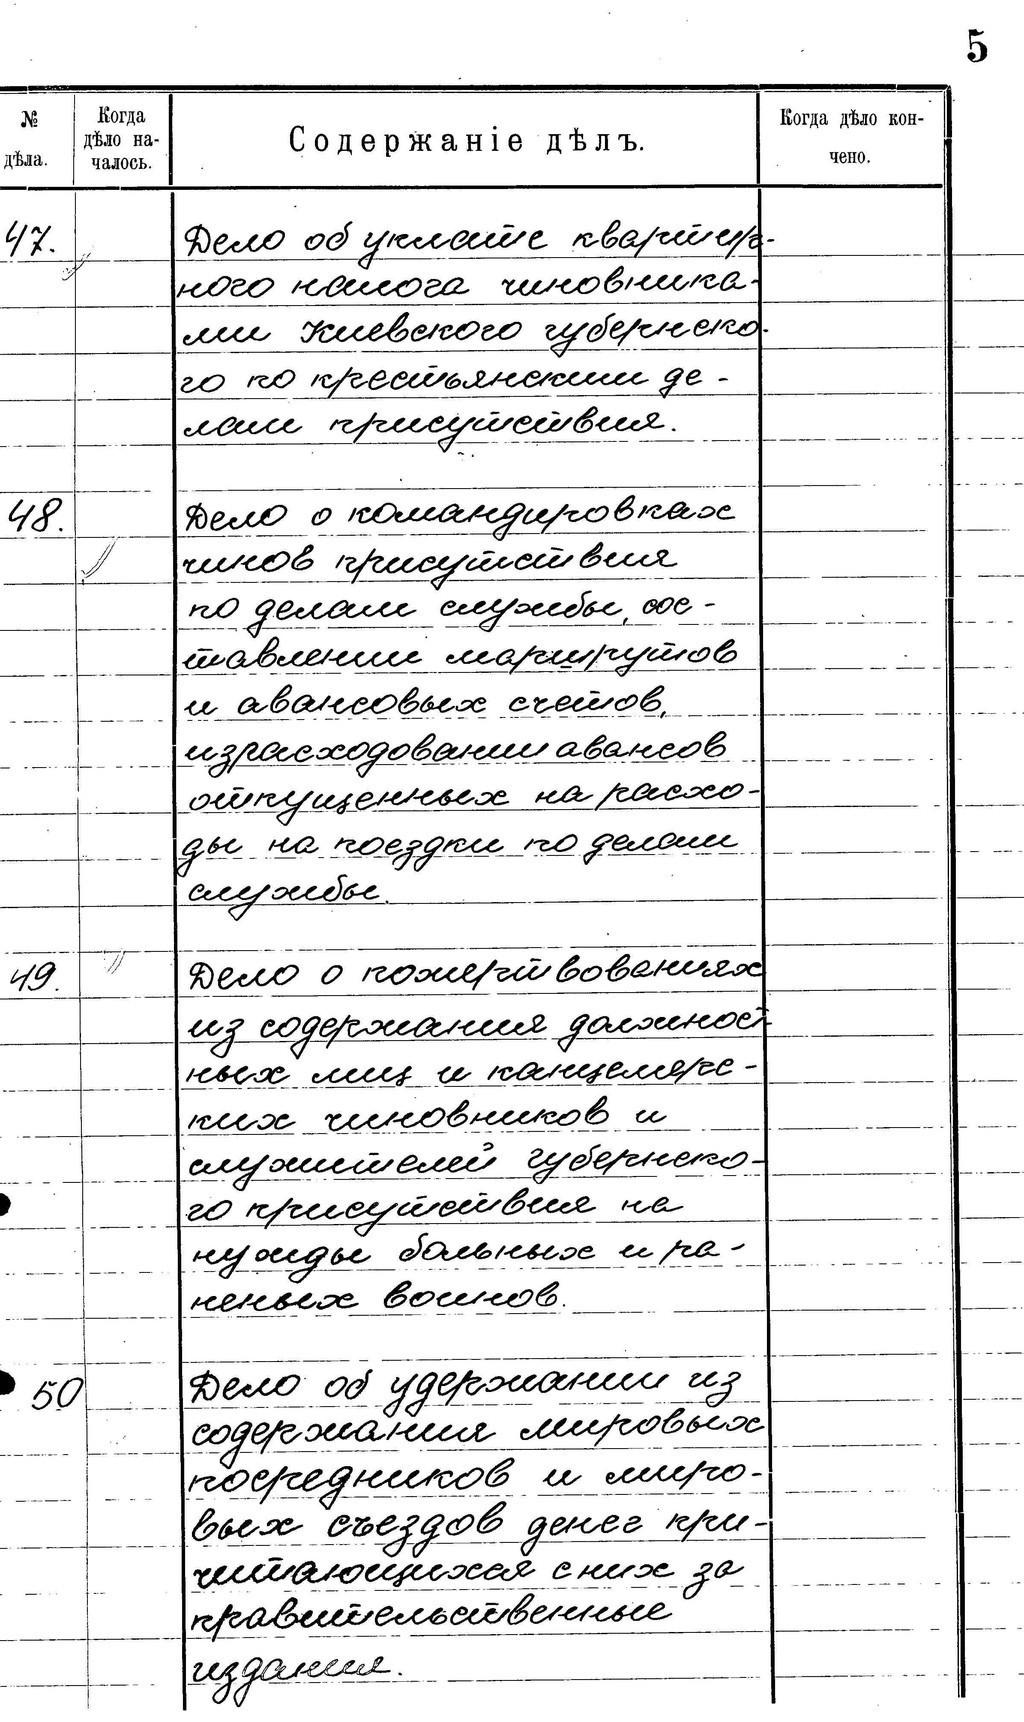 5
№
дѣла.
Когда
дѣло на-
чалось.
Содержаніе дѣлъ.
Когда дѣло кон-
чено.
47.
Дело об уплате квартир-
ного налога чиновника-
ми Киевского губернско-
го по крестьянским де-
лам присутствия.
48.
Дело о командировках
чинов присутствия
по делам службы, сос-
тавлении маршрутов
и авансовых счетов,
израсходовании авансов
отпущенных на расхо-
ды на поездки по делам
службы.
49.
Дело о пожертвованиях
из содержания должност
ных лиц и канцелярс-
ких чиновников и
служителей губернско-
го присутствия на
нужды больных и ра-
неных воинов.
50
Дело об удержании из
содержания мировых
посредников и миро-
вых съездов денег при-
читающихся с них за
правительственные
издания.